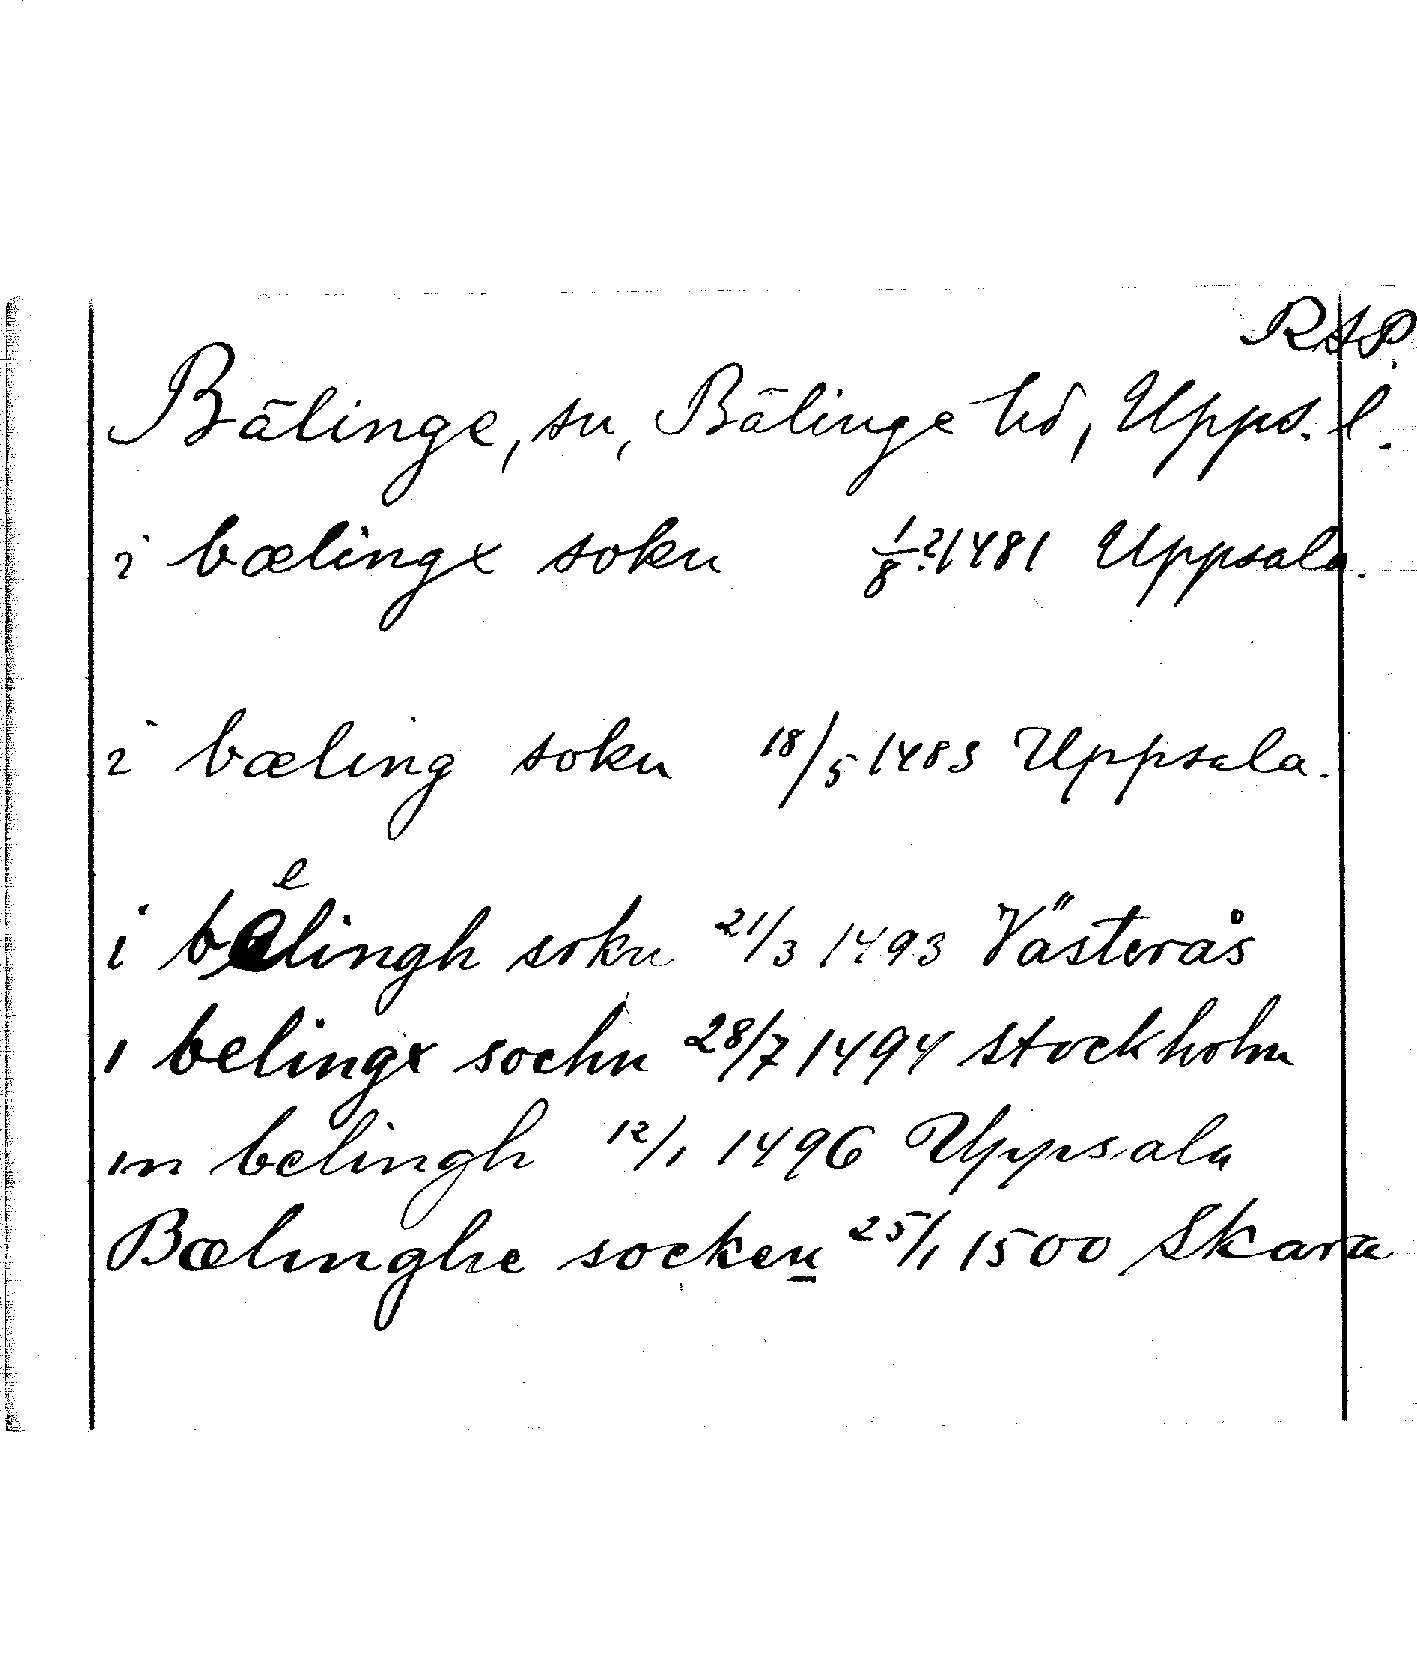 RAP.
Bälinge, sn, Bälinge hd, Upps. l.
i bælingx sokn 1/8 ? 1481 Uppsala.
i bæling sokn 18/5 1483 Uppsala.
e
i belingh sokn 21/3 1493 Västerås
i belingx sochn 28/7 1494 Stockholm
in belingh 12/1 1496 Uppsala
Bælinghe socken 25/1 1500 Skara